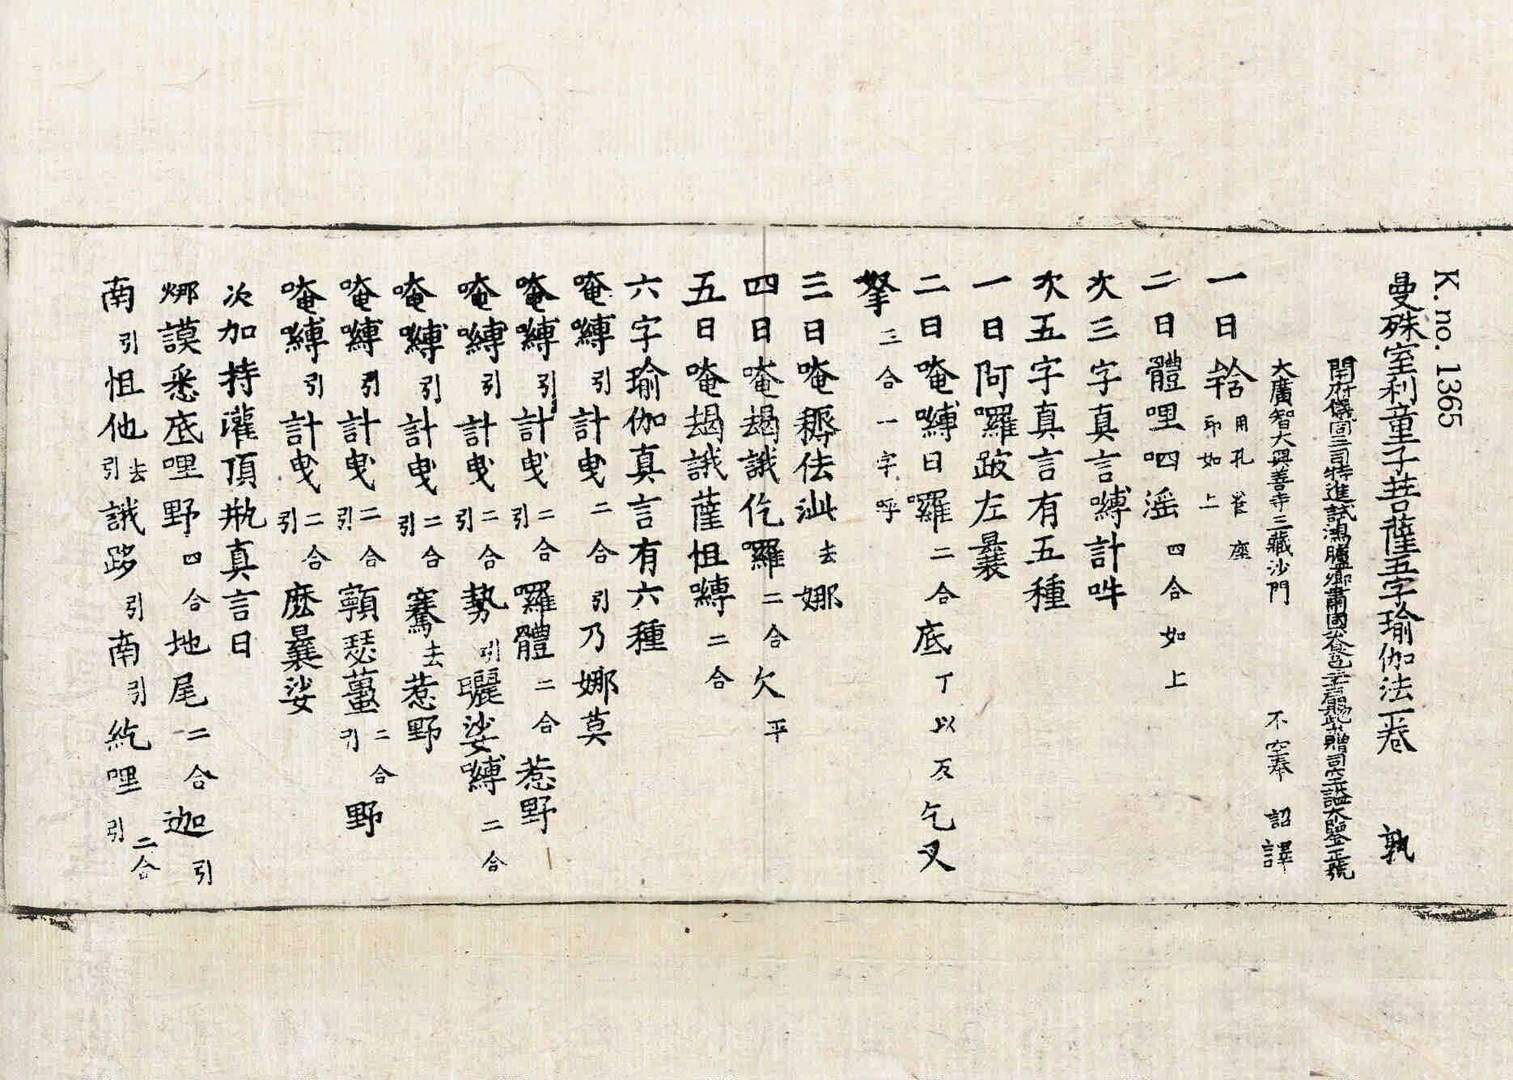 K. no. 1365
曼殊室利童子菩薩五字瑜伽法一卷 孰
開府儀同三司特進試鴻臚卿肅國公食邑三千戶賜紫贈司空謚大鑒正號
大廣智大興善寺三藏沙門 不空奉 詔譯
一曰 𤚥 用孔雀座印如上
二曰體哩呬淫 四合如上
次三字真言嚩計吽
次五字真言有五種
一曰阿囉跛左曩
二曰唵嚩日囉 二合 底 丁以反 乞叉
拏 三合一字呼
三曰唵耨佉泚 去 娜
四曰唵朅誐仡囉 二合 欠 平
五曰唵朅誐薩怛嚩 二合
六字瑜伽真言有六種
唵嚩 引 計曳 二合引 乃娜莫
唵嚩 引 計曳 二合引 囉體 二合 惹野
唵嚩 引 計曳 二合引 勢 引 曬娑嚩 二合
唵嚩 引 計曳 二合引 騫 去 惹野
唵嚩 引 計曳 二合引 顆瑟薑 二合引 野
唵嚩 引 計曳 二合引 麼曩娑
次加持灌頂瓶真言曰
娜謨悉底哩野 四合 地尾 二合 迦 引
南 引 怛他 去引 誐跢 引 南 引 紇哩 二合引